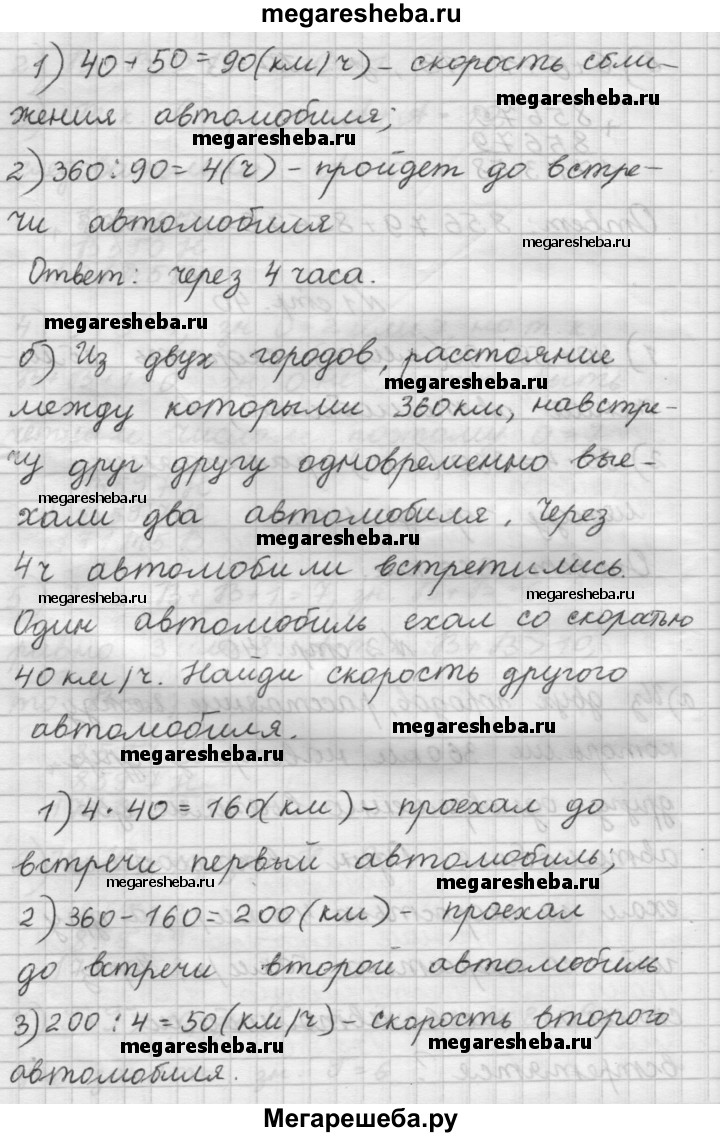 megaresheba.ru
1) 40 + 50 = 90 (км/ч) – скорость сбли-
megaresheba.ru
жения автомобиля;
megaresheba.ru
2) 360 : 90 = 4 (ч) – пройдет до встре-
чи автомобиля
megaresheba.ru
Ответ: через 4 часа.
megaresheba.ru
б) Из двух городов, расстояние
megaresheba.ru
между которыми 360 км, навстре-
чу друг другу одновременно вые-
megaresheba.ru
хали два автомобиля. Через
megaresheba.ru
4ч автомобили встретились.
megaresheba.ru megaresheba.ru
Один автомобиль ехал со скоратью
40 км/ч. Найди скорость другого
автомобиля.
megaresheba.ru
megaresheba.ru
1) 4 · 40 = 160 (км) – проехал до
встречи первый автомобиль;
megaresheba.ru megaresheba.ru
2) 360 – 160 = 200 (км) – проехал
до встречи второй автомобиль
3) 200 : 4 = 50 (км/ч) – скорость второго
megaresheba.ru megaresheba.ru
автомобиля.
Мегарешеба.ру